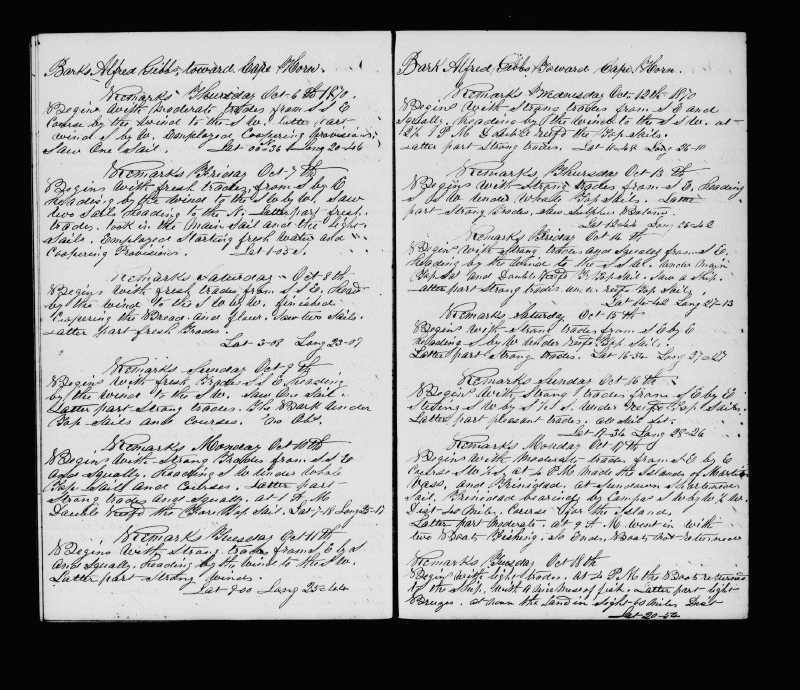 Bark Alfred Gibbs, toward Cape Horn.
Remarks Thursday Oct 6th 1870.
Begins with moderate trades from S S E
course by the wind to the S W. latter part
wind S by W. Employed Coopering provisions,
Saw One Sail. Lat 00=36 Long 20=46
Remarks Friday Oct 7th
Begins with fresh trades, from S by E
heading by the wind to the S W by W. Saw
two Sails heading to the N. Latter part fresh
trades. took in the main Sail and the light
Sails. Employed Starting fresh Water and
Coopering Provisions. Lat 1-05 S.
Remarks Saturday Oct 8th
Begins with fresh trades from S S E, Head
by the wind to the S W by W. finished
Coopering the Bread and flour. Saw two Sails.
Latter part fresh trades.
Lat 3-08 Long 23-07
Remarks Sunday Oct 9th
Begins with fresh trades S S E, heading
by the wind to the S W. Saw One Sail.
Latter part Strong trades. The Bark under
Top Sails and Courses. No Obs.
Remarks Monday Oct 10th
Begins with Strong Trades from S S E
and Squally. Heading S W under whole
Top Sails and Courses. Latter part
Strong trades and Squally. at 1 A M
Double reef'd the Fore Top Sail. Lat 7-18 Long 25-17
Remarks Tuesday Oct 11th
Begins with Strong trades from S E by S
and Squally. heading by the wind to the S W.
Latter part Strong winds.
Lat 9-00 Long 25=44
Bark Alfred Gibbs, Toward Cape Horn.
Remarks Wednesday Oct 12th 1870
Begins with Strong trades from S E and
Squally. heading by the wind to the S S W. at
P M Double reef'd the Top Sails.
Latter part Strong trades. Lat 10-48 Long 26-10
Remarks Thursday Oct 13th
Begins with Strong trades from S E, Heading
under whole Top Sails. Latter
part Strong trades,
Remarks Friday Oct 14th
Begins with Strong trades and Squalls from S E.
Heading by the wind to the under main
Top Sail and Double reef'd F Top Sail. Saw a Ship.
Latter part Strong trades under reef'd Top Sails
Lat 14-42 Long 27-13
Remarks Saturday Oct 15th
Begins with Strong trades from S E by E
heading S by W under reef'd Top Sail.
Latter part Strong trades. Lat 16-34 Long 27=27
Remarks Sunday Oct 16th
Begins with Strong trades from S E by E
Steering S W by S under reef'd Top Sails.
Latter part pleasant trades. all Sail Set.
Lat 19-34 Long 28-26
Remarks Monday Oct 17th
Begins with Moderate trades from S E by E
Course S W, at 4 P M made the Islands of Martin
Vass, and Trinidad. at Sundown Shortened
Sail. Trinidad bearing by Compass S W by W W
Dist 20 Miles. Course for the Island.
Latter part Moderate. at 9 A. M. went in with
two Boats Fishing. So Ends, Boats not returned
Remarks Tuesday Oct 18th
Begins with light trades. At 4 P M the Boats returned
to the Ship, with a nice mess of fish. Latter part light
Breezes. at noon the Land in Sight 60 miles Dist
Lat 20-52